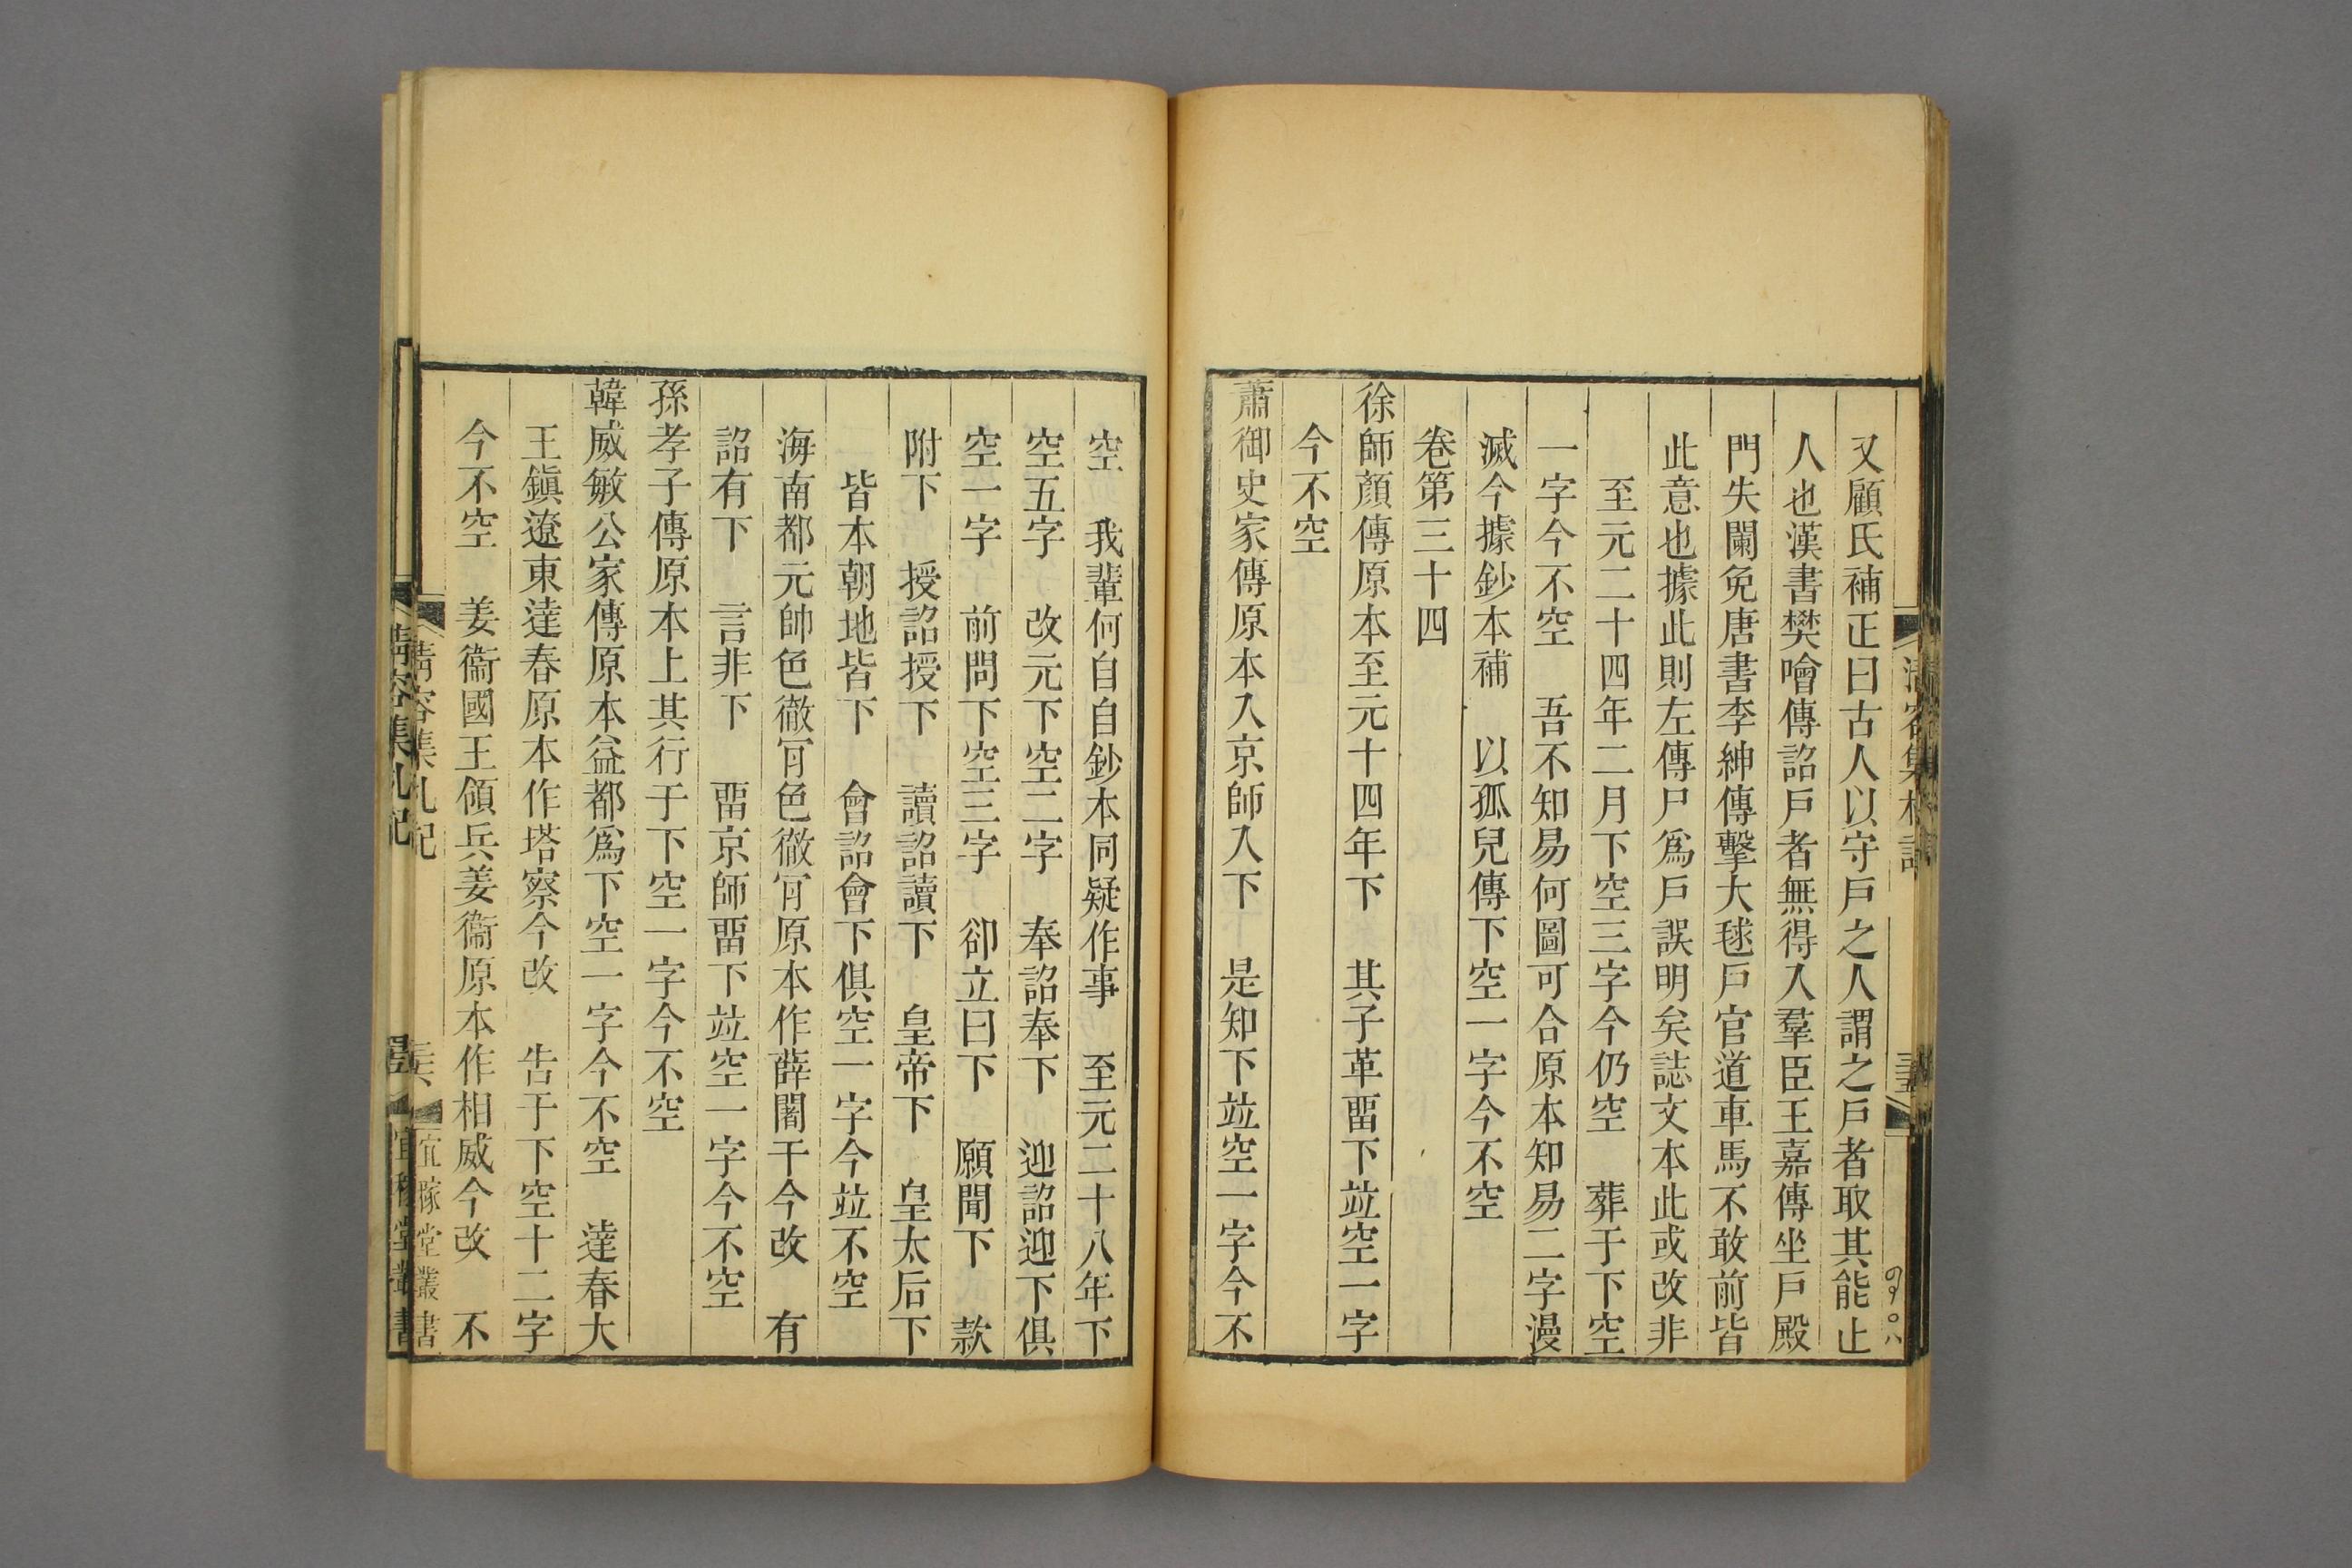 又顧氏補正曰古人以守戶之人謂之戶者取其能止
人也漢書樊噲傳詔戶者無得入羣臣王嘉傳坐戶殿
門失闌免唐書李紳傳擊大毬戶官道車馬不敢前皆
此意也據此則左傳尸爲戶誤明矣誌文本此或改非
至元二十四年二月下空三字今仍空　葬于下空
一字今不空　吾不知易何圖可合原本知易二字漫
滅今據鈔本補　以孤兒傳下空一字今不空
卷第三十四
徐師顏傳原本至元十四年下　其子革畱下竝空一字
今不空
蕭御史家傳原本入京師入下　是知下竝空一字今不
空　我輩何自自鈔本同疑作事　至元二十八年下
空五字　改元下空二字　奉詔奉下　迎詔迎下俱
空一字　前問下空三字　卻立曰下　願聞下　款
附下　授詔授下　讀詔讀下　皇帝下　皇太后下
皆本朝地皆下　會詔會下俱空一字今竝不空
海南都元帥色徹肎色徹肎原本作薛闍干今改　有
詔有下　言非下　畱京師畱下竝空一字今不空
孫孝子傳原本上其行于下空一字今不空
韓威敏公家傳原本益都爲下空一字今不空　達春大
王鎭遼東達春原本作塔察今改　告于下空十二字
今不空　姜衞國王領兵姜衞原本作相威今改　不
清容集札記
宜稼堂叢書